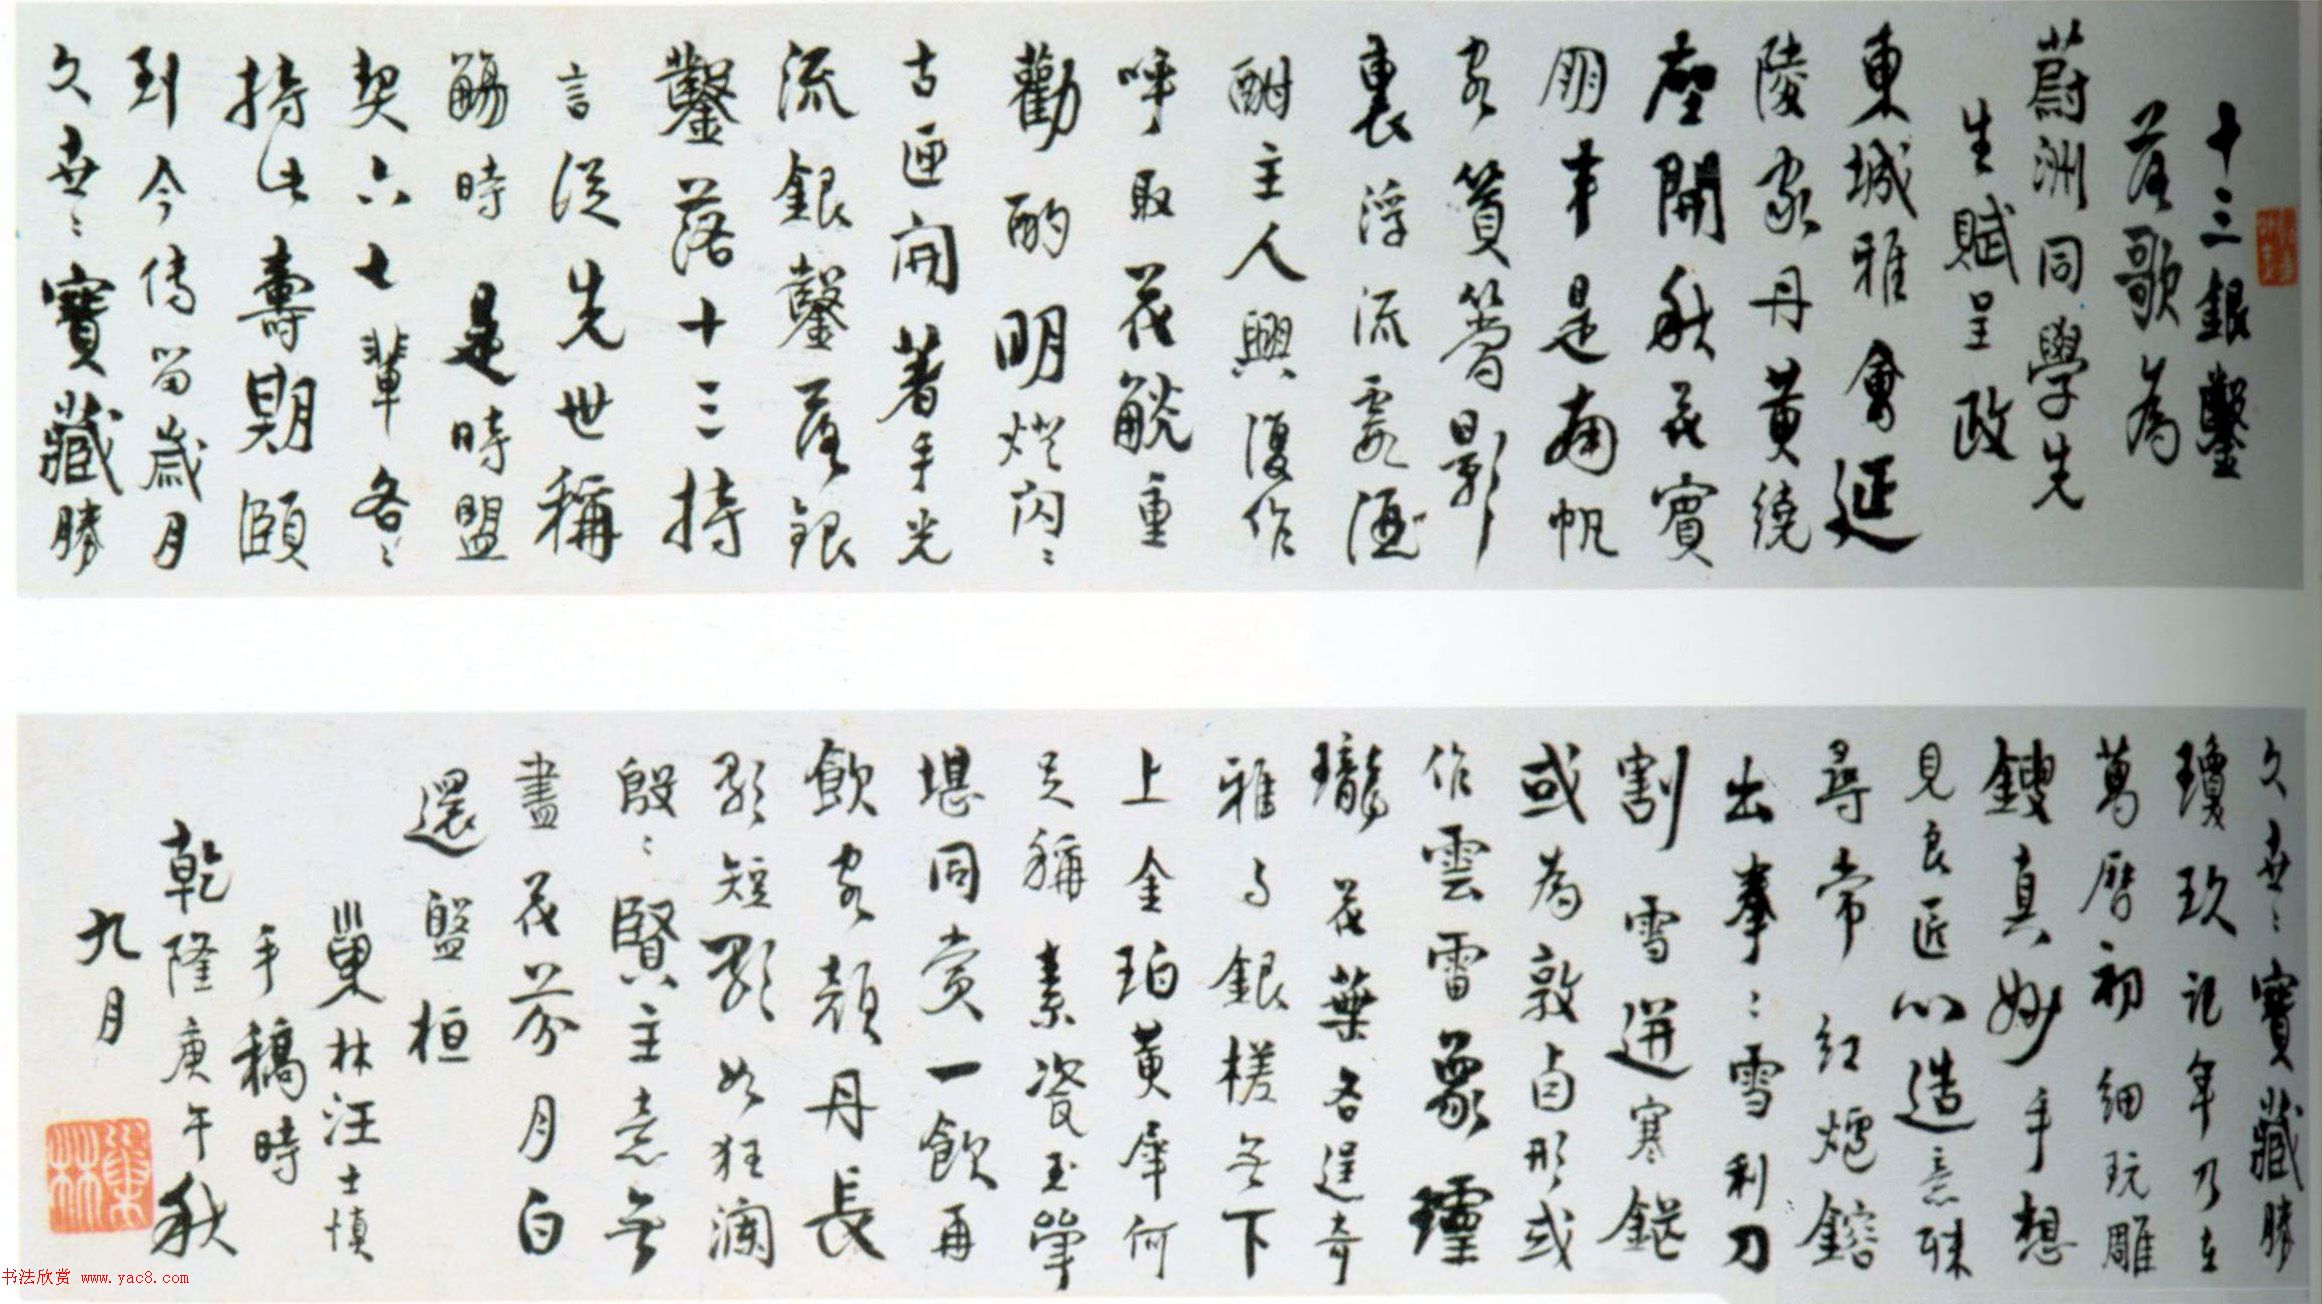 十三銀鑿
落歌為
蔚洲同學先
生賦呈政
東城雅會延
陵家丹黃繞
座開秋花賓
朋半是南帆
客篔簹影
裏浮流霞酒
酣主人興復作
呼取花觥重
勸酌明燈閃〻
古匣開著手光
流銀鑿落銀
鑿落十三持
言從先世稱
觴時是時盟
契六七輩各〻
持此壽期頤
到今傳留歲月
久世〻寶藏勝
久世〻寶藏勝
瓊玖記年乃在
萬曆初細玩雕
鎪真妙手想
見良匠心造意殊
尋常紅爐鎔
出拳〻雪利刀
割雪迸寒鋩
或為敦卣形或
作雲雷象瓏
瓏花葉各逞奇
雅與銀槎無下
上金珀黃犀何
足稱素瓷玉斝
堪同賞一飲再
飲客顏丹長
歌短歌如狂瀾
殷〻賢主意無
盡花芬月白
還盤桓
巢林汪士慎
手稿時
乾隆庚午秋
九月
巢林
书法欣赏 www.yac8.com